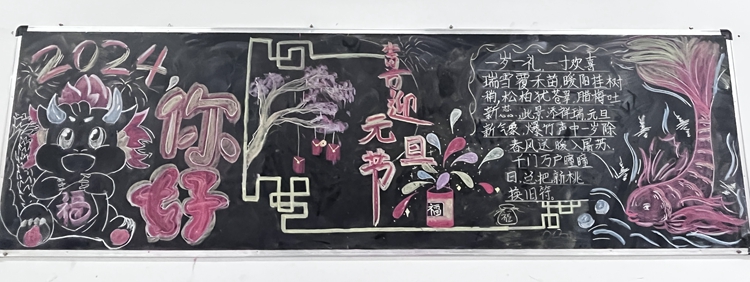 2024
你好
福
喜迎元旦节
福
一岁一礼 一寸欢喜
瑞雪覆禾苗,暖阳挂树
梢,松柏犹苍翠,腊梅吐
新蕊.此景添祥瑞,元旦
新气象.爆竹声中一岁除
春风送暖入屠苏.
千门万户曈曈
日,总把新桃
换旧符.